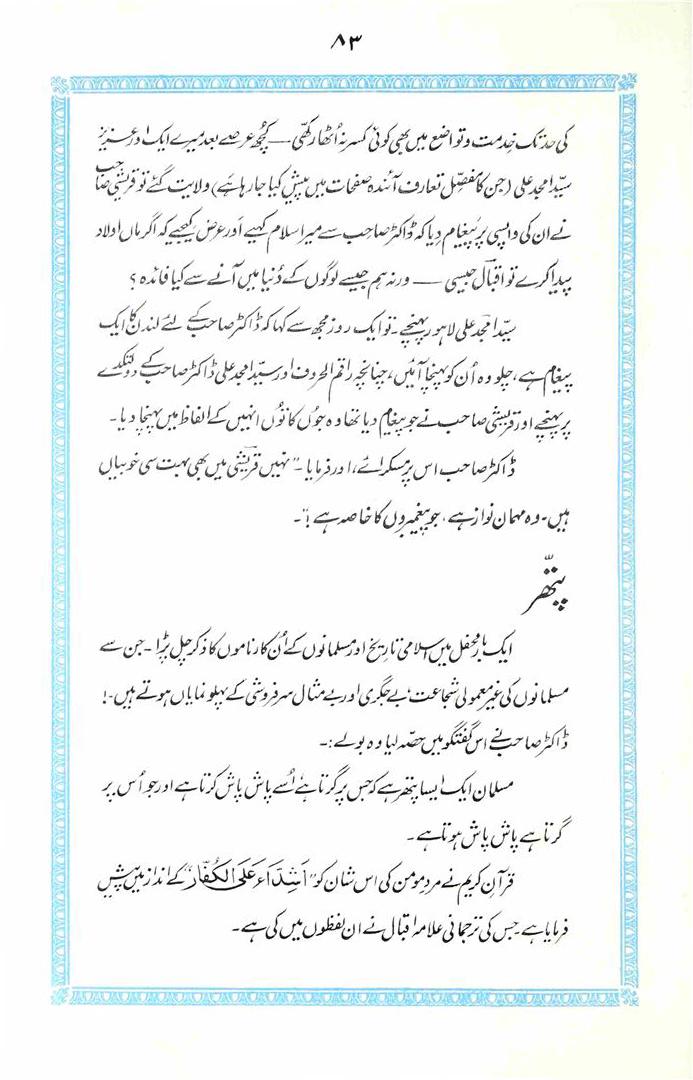 ۸۳
کی حد تک خدمت و تواضع میں بھی کوئی کسر نہ اُٹھا رکھی — کچھ عرصے بعد میرے ایک اور عزیز
سیّد امجد علی (جن کا مفصّل تعارف آئندہ صفحات میں پیش کیا جا رہا ہے) ولایت گئے تو قریشی صاحب
نے ان کی واپسی پر پیغام دیا کہ ڈاکٹر صاحب سے میرا سلام کہیے اور عرض کیجیے کہ اگر ماں اولاد
پیدا کرے تو اقبال جیسی — ورنہ ہم جیسے لوگوں کے دُنیا میں آنے سے کیا فائدہ ؟
سیّد امجد علی لاہور پہنچے۔ تو ایک روز مجھ سے کہا کہ ڈاکٹر صاحب کے لئے لندن کا ایک
پیغام ہے، چلو وہ اُن کو پہنچا آئیں، چنانچہ راقم الحروف اور سیّد امجد علی ڈاکٹر صاحب کے دولتکدے
پر پہنچے اور قریشی صاحب نے جو پیغام دیا تھا وہ جوں کا توں انہیں کے الفاظ میں پہنچا دیا۔
ڈاکٹر صاحب اس پر مسکرائے، اور فرمایا۔ "نہیں قریشی میں بھی بہت سی خوبیاں
ہیں۔ وہ مہمان نواز ہے، جو پیغمبروں کا خاصہ ہے!"۔
پتّھر
ایک بار محفل میں اسلامی تاریخ اور مسلمانوں کے اُن کارناموں کا ذکر چل پڑا۔ جن سے
مسلمانوں کی غیر معمولی شجاعت، بے جگری اور بے مثال سرفروشی کے پہلو نمایاں ہوتے ہیں۔!
ڈاکٹر صاحب نے اس گفتگو میں حصّہ لیا وہ بولے :۔
مسلمان ایک ایسا پتھر ہے کہ جس پر گرتا ہے اُسے پاش پاش کرتا ہے اور جو اُس پر
گرتا ہے پاش پاش ہوتا ہے۔
قرآن کریم نے مردِ مومن کی اس شان کو "اَشِدَّاءُ عَلَی الْکُفَّار" کے انداز میں پیش
فرمایا ہے جس کی ترجمانی علامہ اقبال نے ان لفظوں میں کی ہے۔